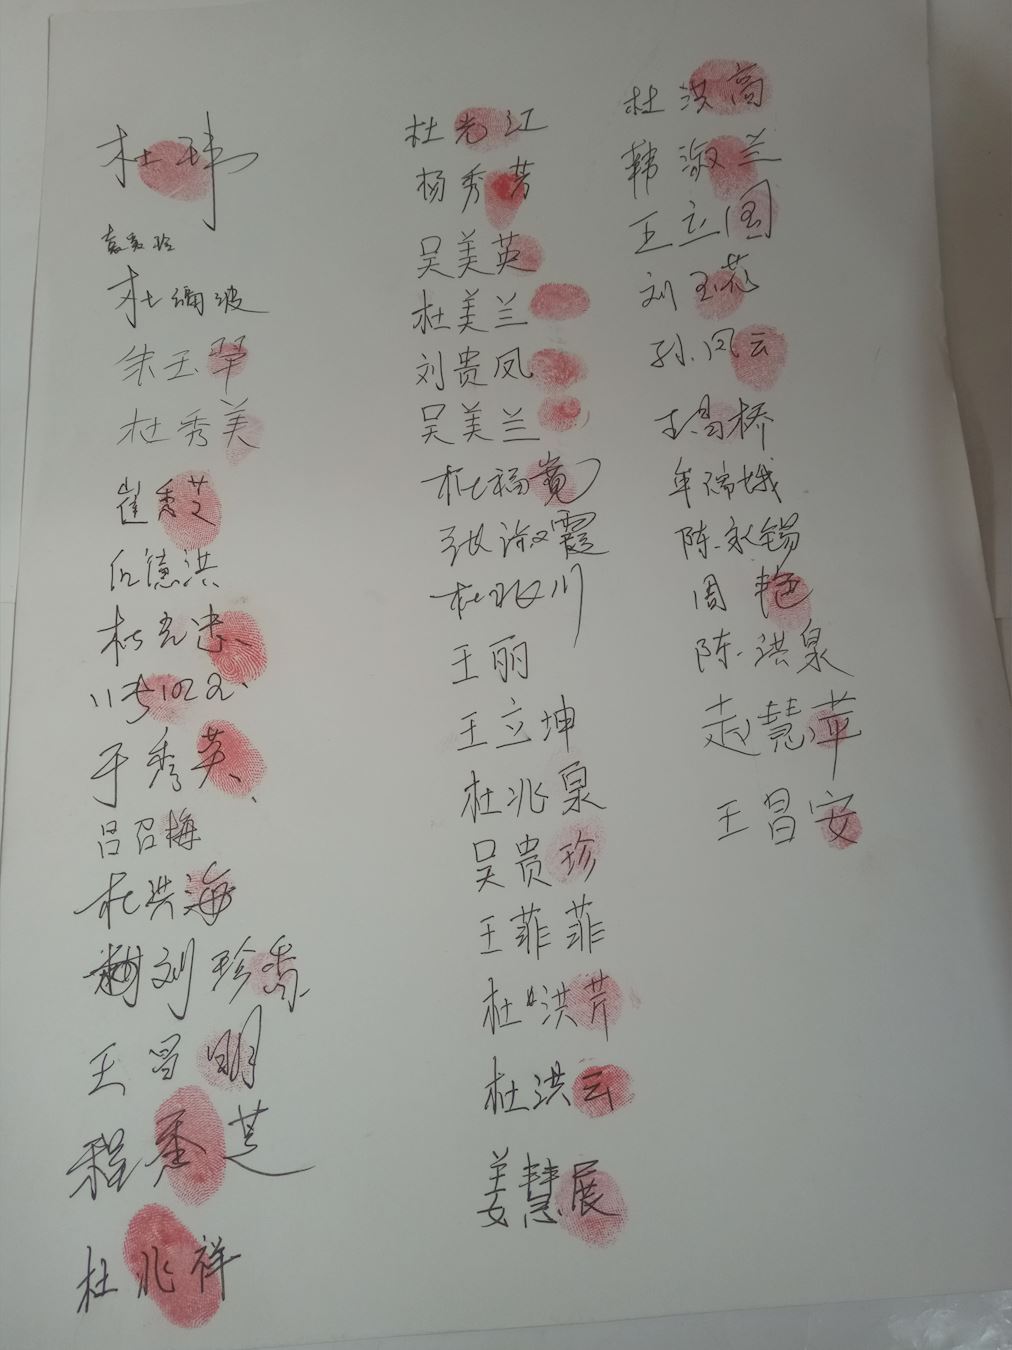 杜玮
杜
朱玉翠
杜秀美
崔秀芝
德洪
杜克忠
于秀英
吕召梅
杜洪海
刘珍香
王昌明
程秀芝
杜兆祥
杜光江
杨秀芳
吴美英
杜美兰
刘贵凤
吴美兰
杜福寛
张淑霞
杜 川
王丽
王立坤
杜兆泉
吴贵珍
王菲菲
杜洪芹
杜洪云
姜慧展
杜洪高
韩淑兰
王立国
刘玉花
孙凤云
王昌桥
牟瑞娥
陈永锡
周艳
陈洪泉
赵慧萍
王昌安